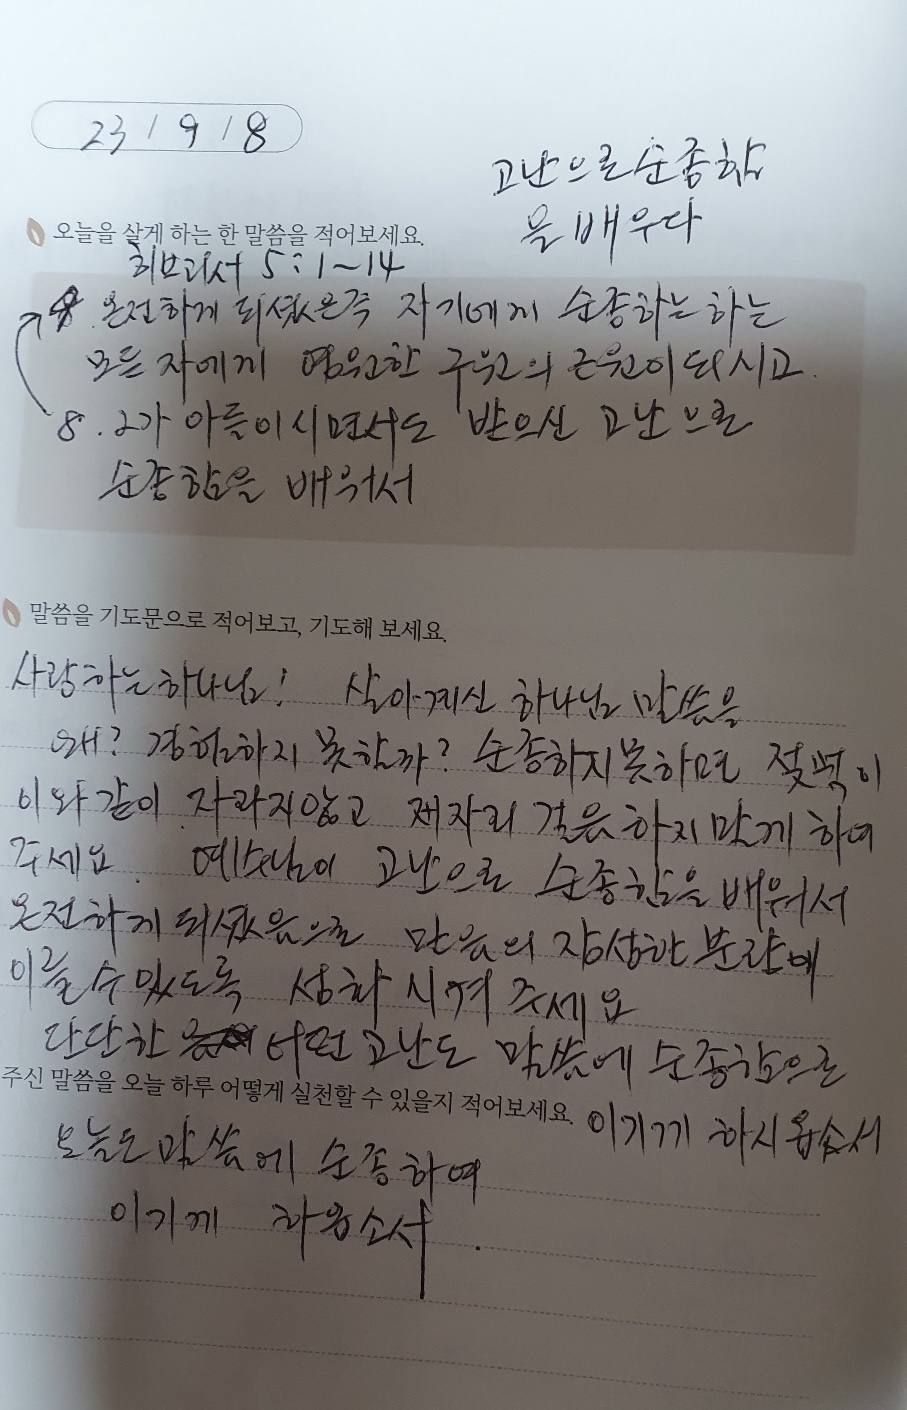 23 / 9 / 8
고난으로 순종함
을 배우다
오늘을 살게 하는 한 말씀을 적어보세요.
히브리서 5:1~14
9. 온전하게 되셨은즉 자기에게 순종하는하는
모든 자에게 영원한 구원의 근원이 되시고.
8. 그가 아들이시면서도 받으신 고난으로
순종함을 배워서
말씀을 기도문으로 적어보고, 기도해 보세요.
사랑하는하나님! 살아계신 하나님 말씀을
왜? 경험하지 못할까? 순종하지못하면 젖먹이
이와 같이 자라지않고 제자리 걸음하지말게 하여
주세요. 예수님이 고난으로 순종함을 배워서
온전하게 되셨음으로 믿음의 장성한 분량에
이를 수 있도록 성화 시켜 주세요
단단한 어떤 고난도 말씀에 순종함으로
주신 말씀을 오늘 하루 어떻게 실천할 수 있을지 적어보세요.
이기게 하시옵소서
오늘도 말씀에 순종하여
이기게 하옵소서.